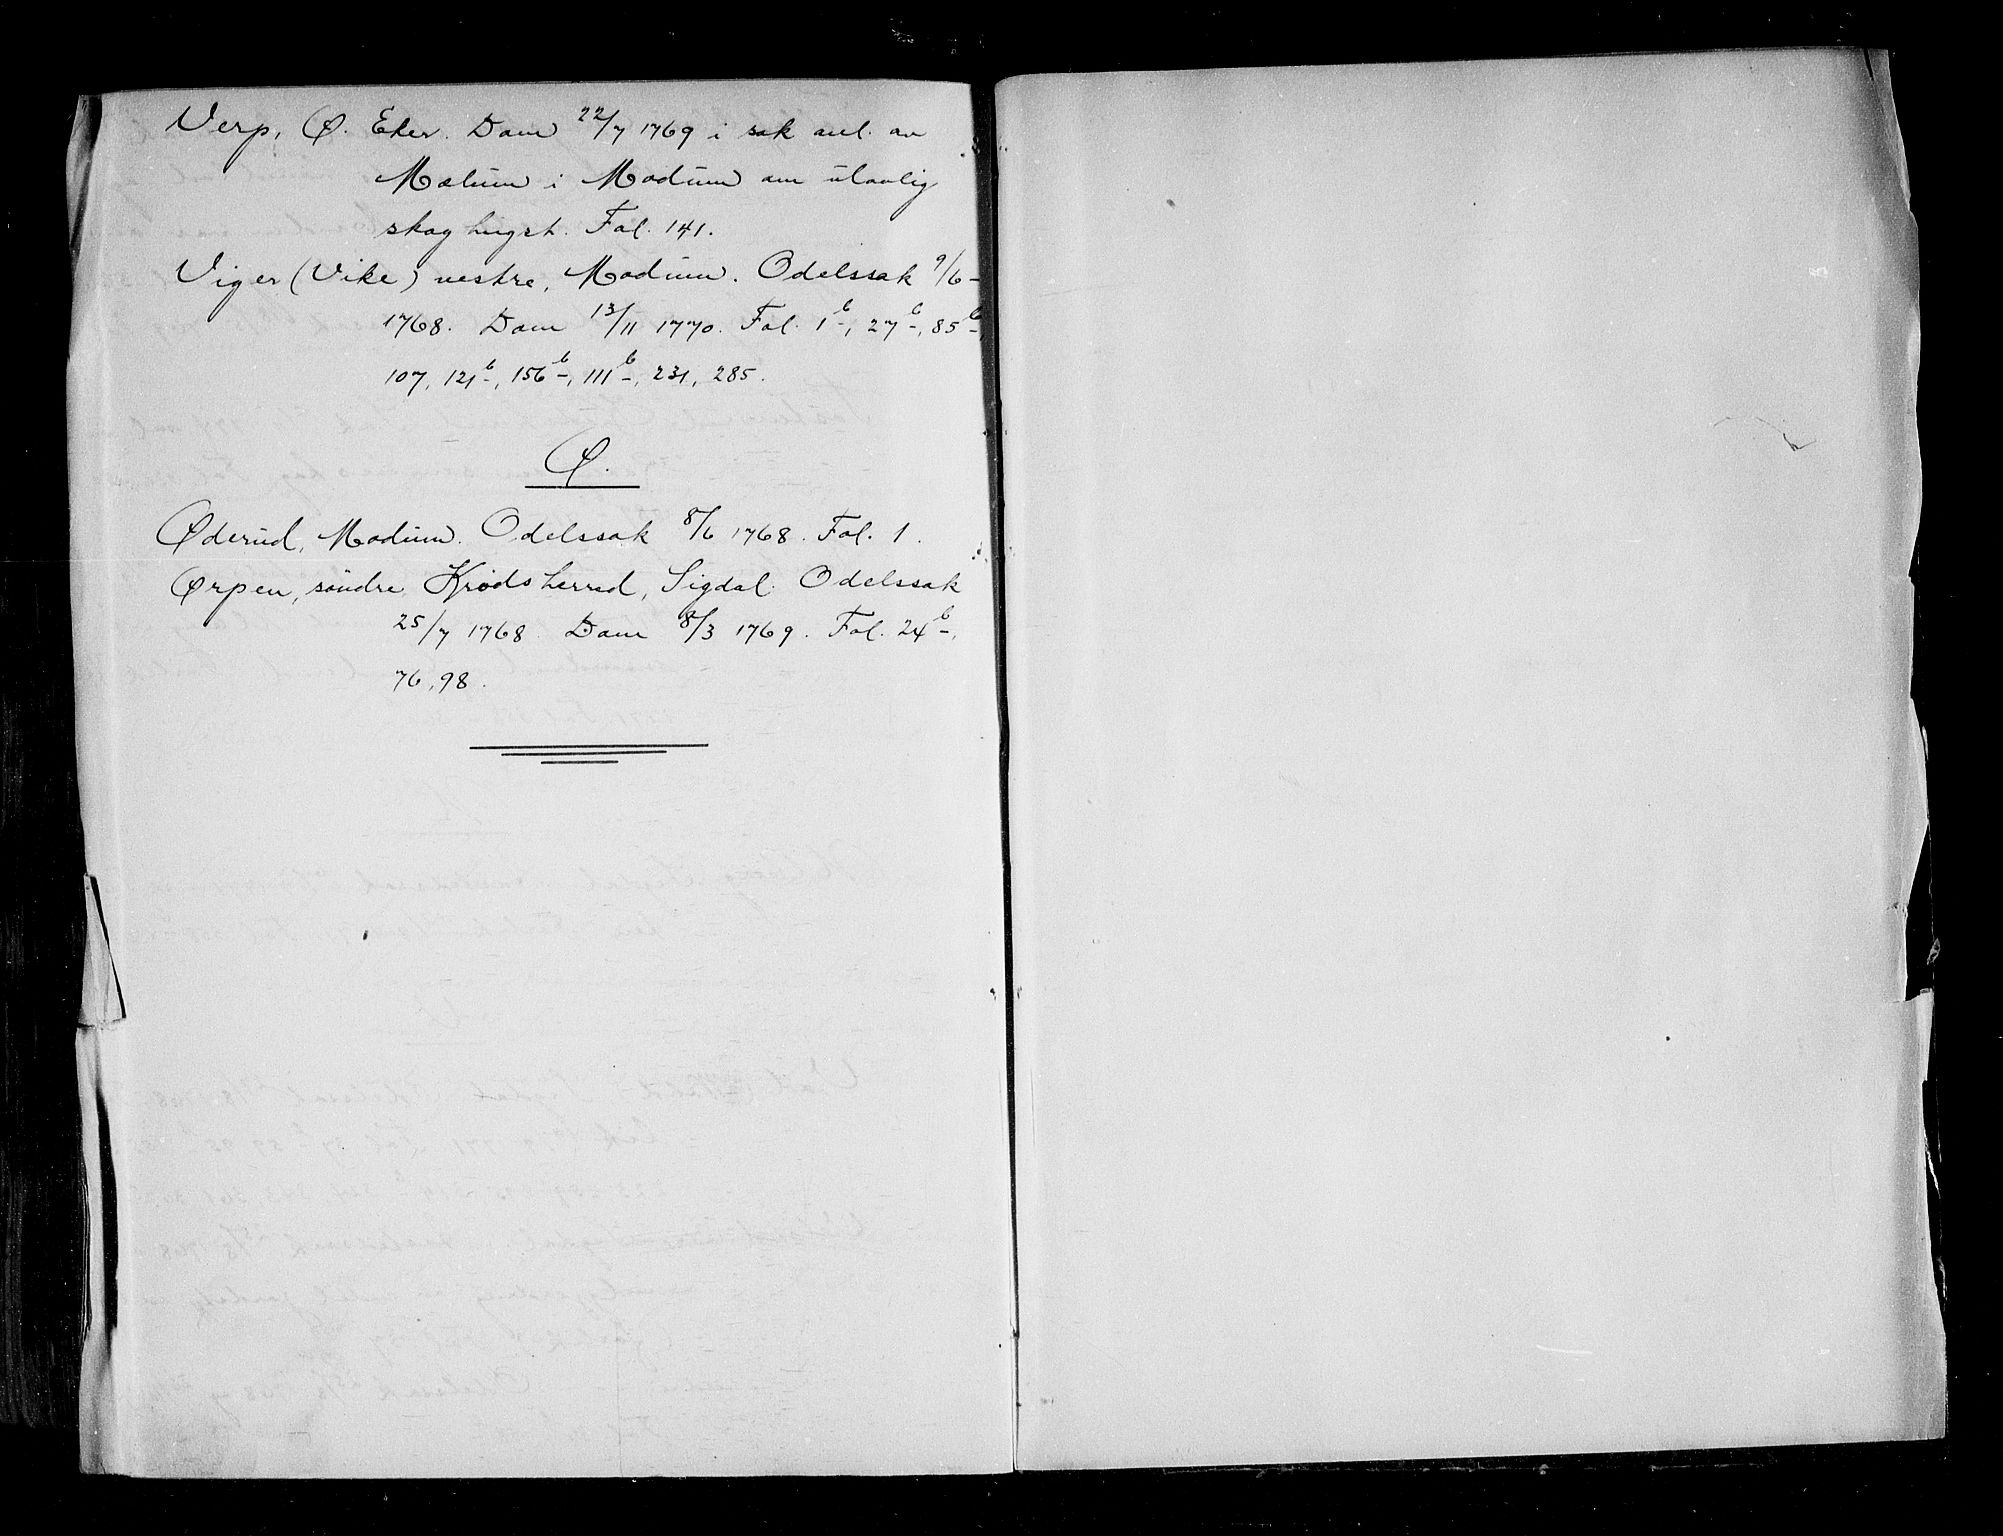 Verp, Ø. Eker. Dom 22/7 1769 i sak anl. av
Mælum i Modum om ulovlig
skoghugst. Fol. 141.
Viger (Vike) vestre, Modum. Odelssak 9/6-
1768. Dom 13/11 1770. Fol. 1b, 27b, 85b,
107, 121b, 156b, 111b, 231, 285.
Ø.
Øderud, Modum. Odelssak 8/6 1768. Fol. 1.
Ørpen, søndre, Krødsherred, Sigdal. Odelssak
25/7 1768. Dom 8/3 1769. Fol. 24b,
76, 98.